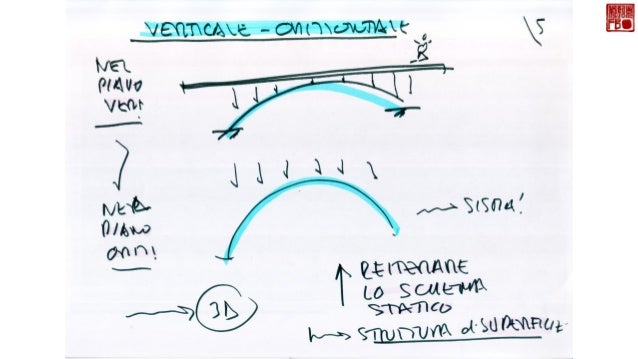 VERTICALE - ORIZZONTALE
15
NEL
PIANO
VERT!
NEL
PIANO
ORIZ!
SISMA!
REITERARE
LO SCHEMA
STATICO
3D
STRUTTURA di SUPERFICIE